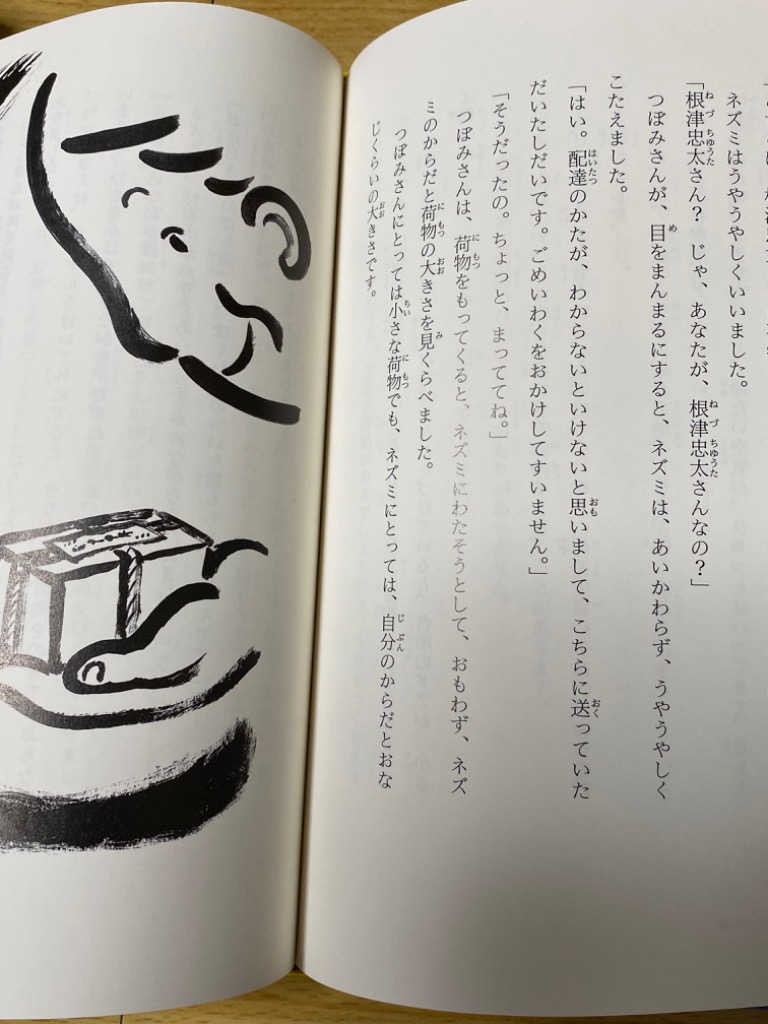 ネズミはうやうやしくいいました。
「根津忠太さん？　じゃ、あなたが、根津忠太さんなの？」
つぼみさんが、目をまんまるにすると、ネズミは、あいかわらず、うやうやしく
こたえました。
「はい。配達のかたが、わからないといけないと思いまして、こちらに送っていた
だいたしだいです。ごめいわくをおかけしてすいません。」
「そうだったの。ちょっと、まっててね。」
つぼみさんは、荷物をもってくると、ネズミにわたそうとして、おもわず、ネズ
ミのからだと荷物の大きさを見くらべました。
つぼみさんにとっては小さな荷物でも、ネズミにとっては、自分のからだとおな
じくらいの大きさです。